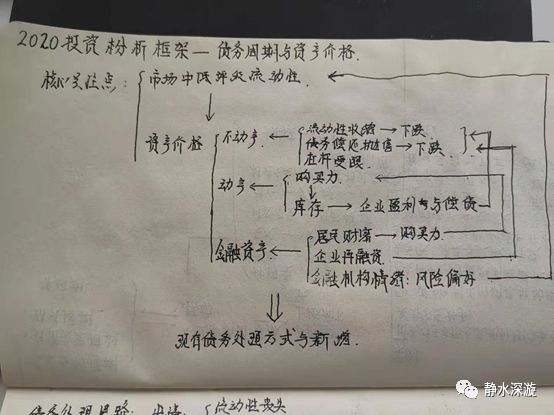 2020投资分析框架—债务周期与资产价格.
核心关注点: 市场中限期及流动性
资产价格
不动产 ← 流动性收缩 → 下跌.
债务偿还抛售 → 下跌.
杠杆受限.
动产 ← 购买力.
库存 → 企业盈利与偿债
金融资产 ← 居民财富 → 购买力.
企业再融资.
金融机构情绪: 风险偏好
现有债务处理方式与新增.
债务处理思路:
流动性丧失
静水深漩